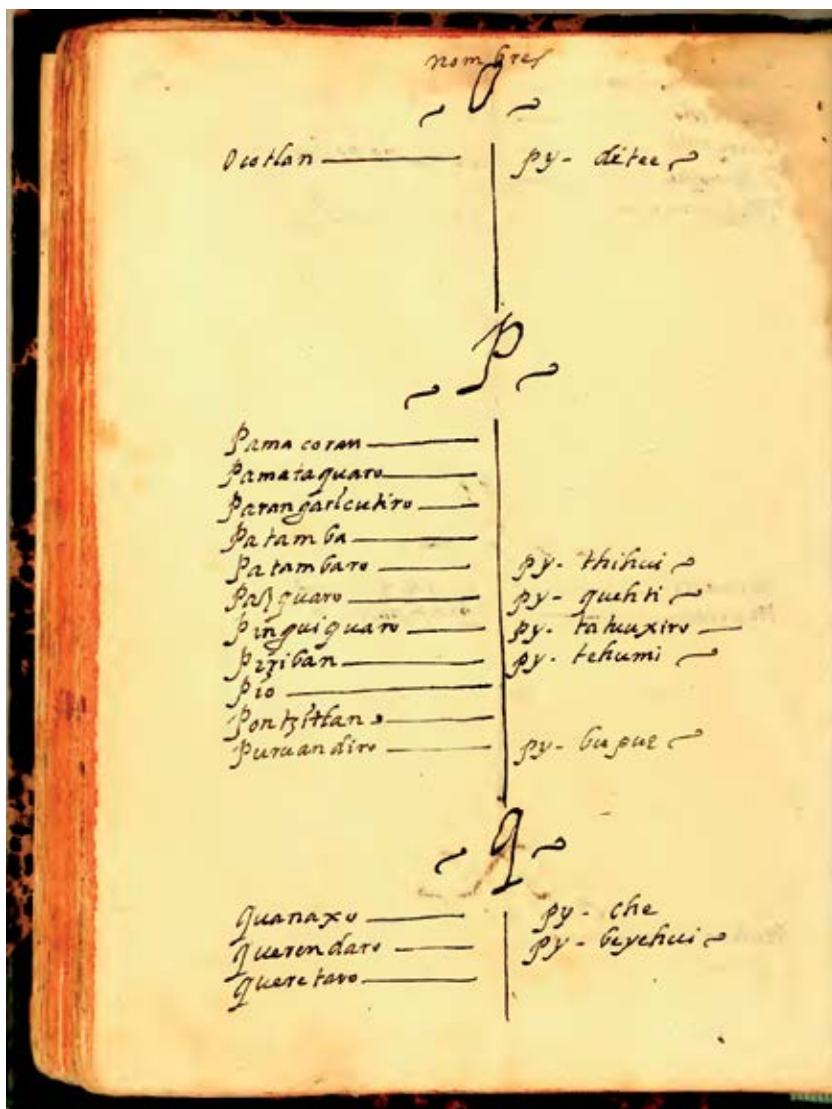 nombres
O
Ocotlan — py - dètee
P
Pamacoran —
Pamataquaro —
Parangaricutiro —
Patamba —
Patambaro — py - thihui
Pasquaro — py - quehti
Pinguiquaro — py - tàhuuxiro —
Piziban — py - tehumi
Pio —
Pontzitlan —
Puruandiro — py - bupue
q
quanaxo — py - che
querendaro — py - beyehui
queretaro —